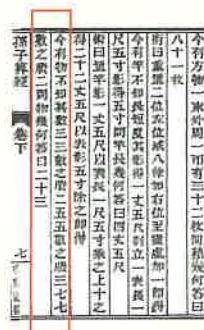 今有方物一束外周一市有三十二枚問積幾何荅曰
八十一枚
術曰重置二位左位減八餘加右位至盡虛加一即得
今有竿不知長短度其影得一丈五尺別立一表長一
尺五寸影得五寸問竿長幾何荅曰四丈五尺
術曰置竿影一丈五尺以表長一尺五寸乘之上十之
得二十二丈五尺以表影五寸除之即得
今有物不知其數三三數之賸二五五數之賸三七七
數之賸二問物幾何荅曰二十三
孫子算經 卷下 七